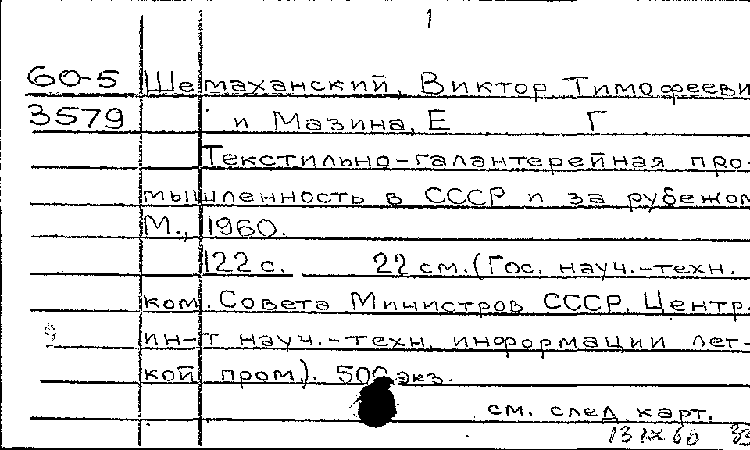 1
60-5 Шемаханский, Виктор Тимофееви
3579 и Мазина, Е Г
Текстильно-галантерейная про-
мышленность в СССР и за рубежом
М., 1960.
122 с. 22 см. (Гос. науч.-техн.
ком. Совета Министров СССР. Центр.
9 ин-т науч.-техн. информации лег-
кой пром.). 500 экз.
см. след карт.
13 IX 60 33